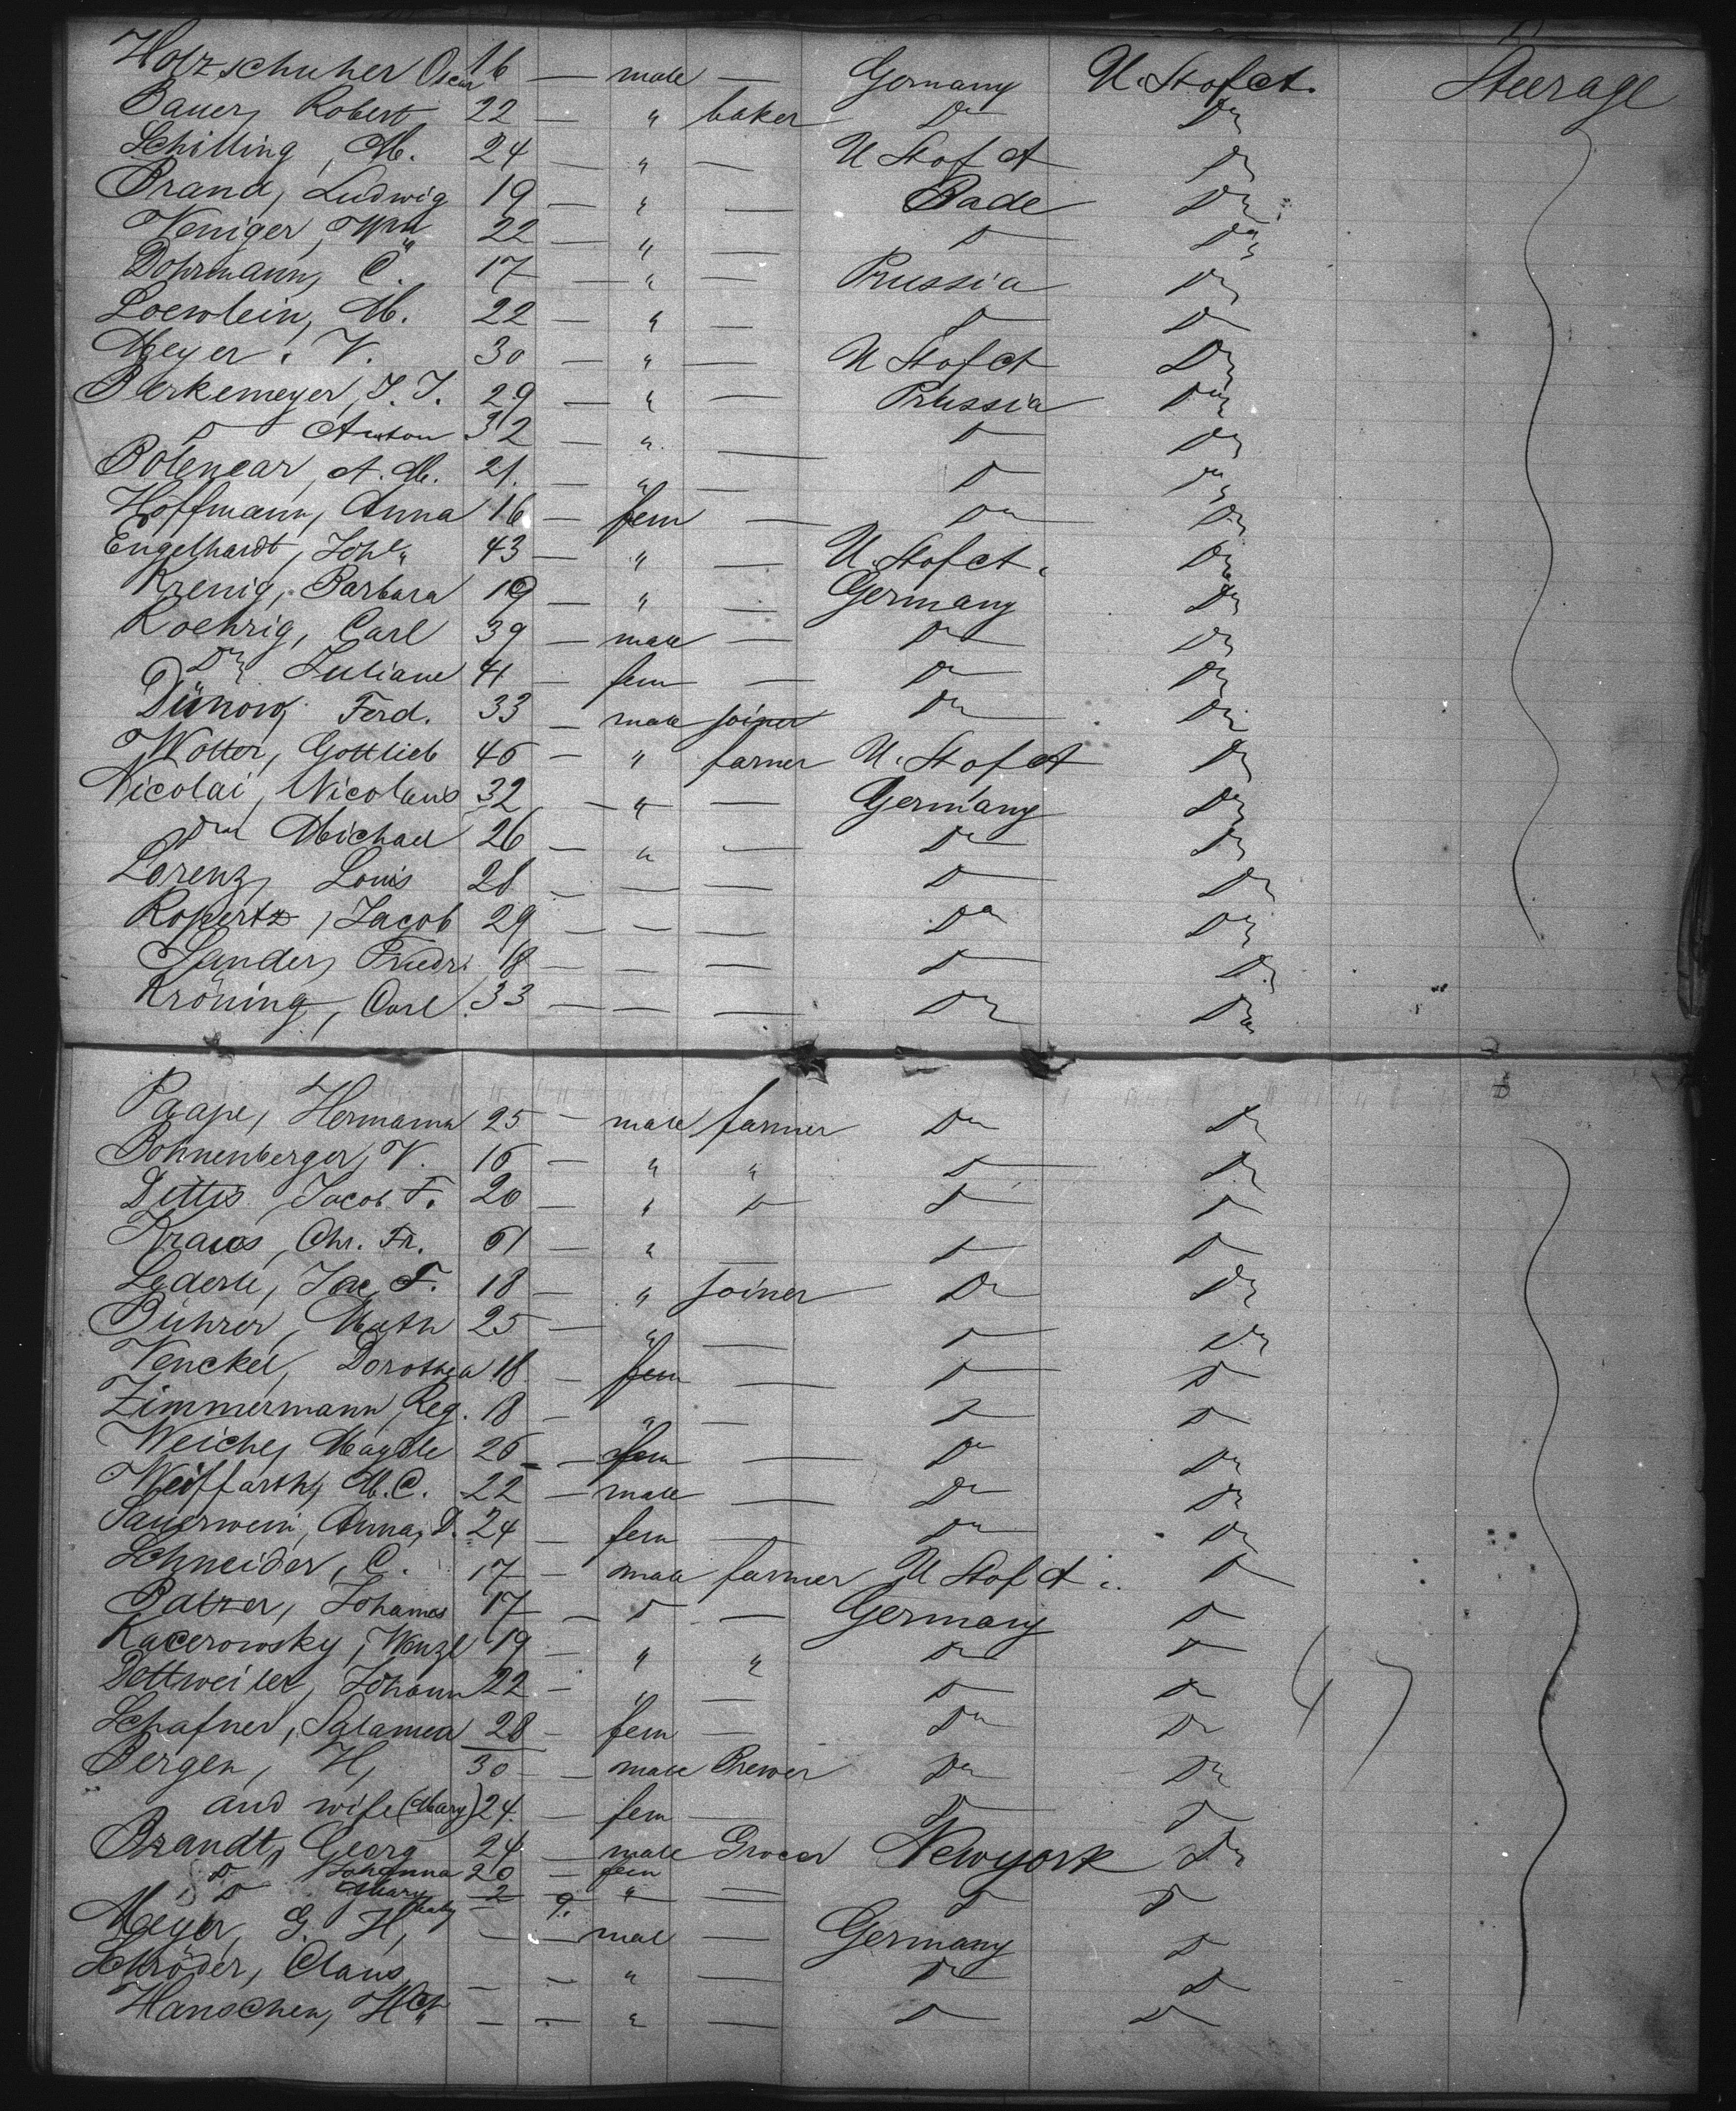 Holzschuher Oscar 16 — male — Germany U. St of A. Steerage
Bauer, Robert 22 — " baker Do Do
Schilling, M. 24 — " — U St of A Do
Brand, Ludwig 19 — " — Bade Do
Weniger, Wm 22 — " — Do Do
Dohrmann, C. 17 — " — Prussia Do
Loewlein, M. 22 — " — Do Do
Meyer, V. 30 — " — U St of A Do
Berkemeyer, J. J. 29 — " — Prussia Do
Do Anton 32 — " — Do Do
Polencar, A. M. 21. — " — Do Do
Hoffmann, Anna 16 — fem — Do Do
Engelhardt, Johe 43 — " — U. St of A. Do
Krenig, Barbara 19 — " — Germany Do
Roehrig, Carl 39 — male — Do Do
Do Juliane 41 — fem — Do Do
Dünow, Ferd. 33 — male joiner Do Do
Wolter, Gottlieb 46 — " farmer U. St of A Do
Nicolai, Nicolaus 32 — " — Germany Do
Do Michael 26 — " — Do Do
Lorenz, Louis 28 — — — Do Do
Ropertz, Jacob 29 — — — Do Do
Sander, Friedr. 18 — — — Do Do
Kröning, Carl 33 — — — Do Do
Paape, Hermann 25 — male farmer Do Do
Bohnenberger, V. 16 — " " Do Do
Dittis Jacob F. 20 — " Do Do Do
Kraus, Chr. Fr. 61 — " — Do Do
Lederle, Jac. F. 18 — " joiner Do Do
Bührer, Math 25 — " — Do Do
Venckel, Dorothea 18 — fem — Do Do
Zimmermann, Reg. 18 — " — Do Do
Weiche, Magdle 26 — fem — Do Do
Weiffarth, M. C. 22 — male — Do Do
Sauerwein, Anna, D. 24 — fem — Do Do
Schneider, C. 17 — male farmer U St of A. Do
Patzer, Johannes 17 — Do — Germany Do
Kacerowsky, Wenzl 19 — " " Do Do
Dettweiler, Johann 22 — " — Do Do 47
Schafner, Salamea 28 — fem — Do Do
Bergen, H, 30 — male Brewer Do Do
and wife (Mary) 24. — fem — Do Do
Brandt, Georg 24 — male Grocer Newyork Do
Do Johanna 20 — fem
Do Mary 2 — " — Do Do
baby 9.
Meyer, G. H, — — male — Germany Do
Schröder, Claus — — " — Do Do
Hanschen, Hch — — " — Do Do